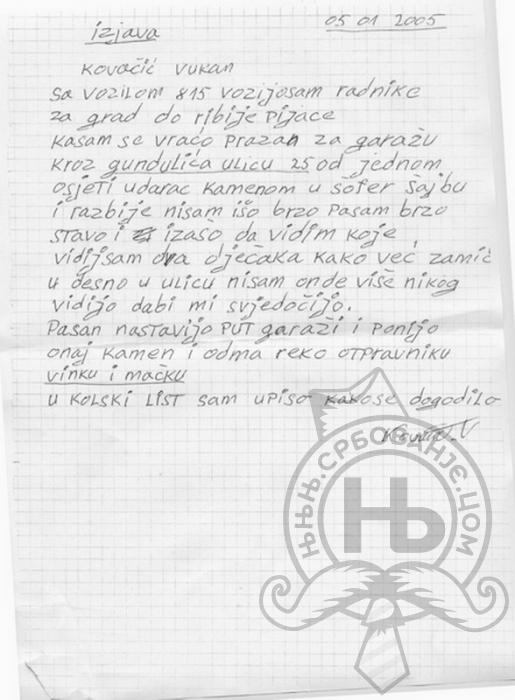 izjava 05 01 2005
Kovačić Vukan
Sa Vozilom 815 vozijosam radnike
za grad do ribije Pijace
Kasam se vraćo Prazan za garažu
Kroz gundulića ulicu 25 od jednom
osjeti udarac Kamenom u šofer šajbu
i razbije nisam išo brzo Pasam brzo
stavo i izašo da vidim koje
vidijsam dva dječaka Kako već zamić
u desno u ulicu nisam onde više nikog
vidijo dabi mi svjedočijo.
Pasan nastavijo PUT garaži i Ponijo
onaj Kamen i odma reko otpravniku
vinku i mačku
u Kolski List sam upiso Kakose dogodilo
ЊЊЊ.СРБОВАЊЕ.ЦОМ
Њ